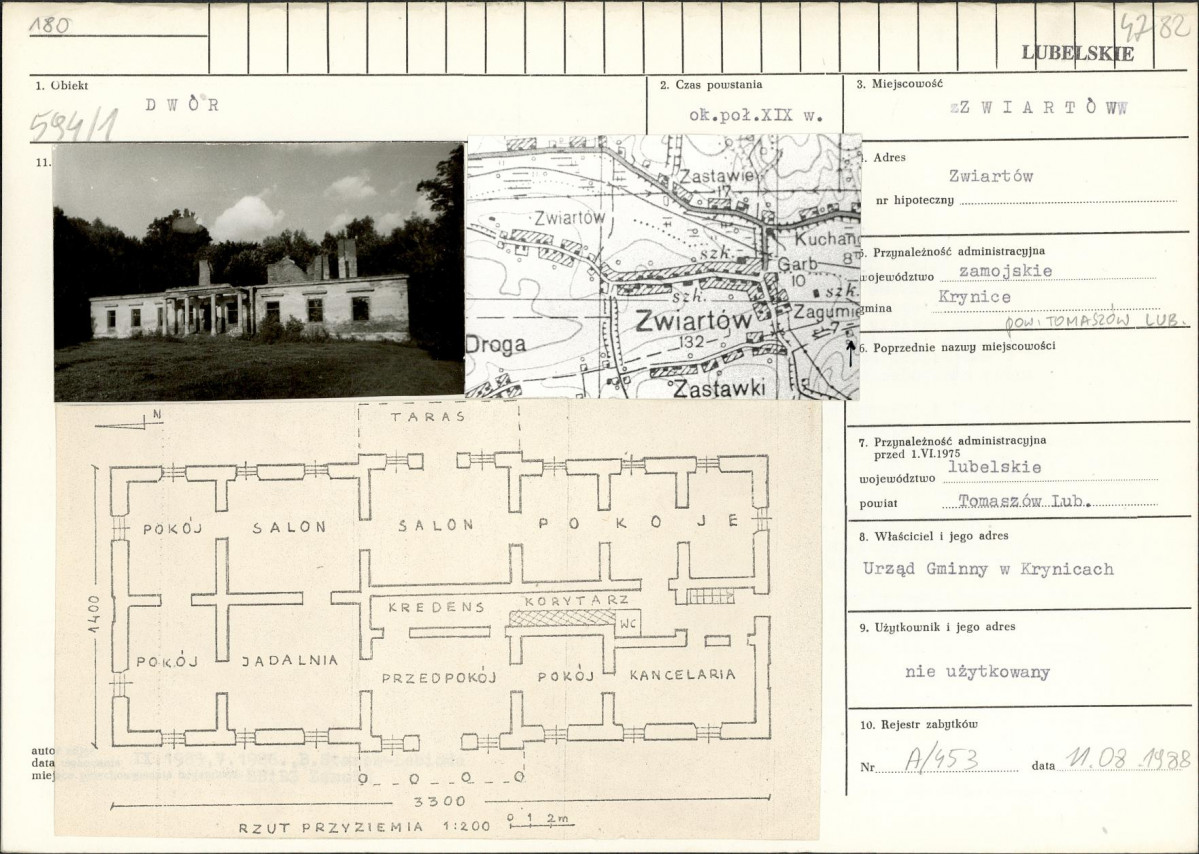 180
47 82
LUBELSKIE
1. Obiekt
D W Ó R
594/1
2. Czas powstania
ok.poł.XIX w.
3. Miejscowość
Z W I A R T Ó W
11.
4. Adres
Zwiartów
nr hipoteczny
5. Przynależność administracyjna
województwo zamojskie
gmina Krynice
pow. TOMASZÓW LUB.
6. Poprzednie nazwy miejscowości
7. Przynależność administracyjna
przed 1.VI.1975
województwo lubelskie
powiat Tomaszów Lub.
8. Właściciel i jego adres
Urząd Gminny w Krynicach
9. Użytkownik i jego adres
nie użytkowany
10. Rejestr zabytków
Nr A/453 data 11.08.1988
Zastawie
17
Zwiartów
szk.
Kuchang
8
Garb
10
szk.
szk.
Zwiartów
132
Zagumie
7
Droga
Zastawki
N
TARAS
POKÓJ
SALON
SALON
P O K O J E
KREDENS
KORYTARZ
WC
POKÓJ
JADALNIA
PRZEDPOKÓJ
POKÓJ
KANCELARIA
1400
3300
RZUT PRZYZIEMIA 1:200
0 1 2m
auto
data
miej